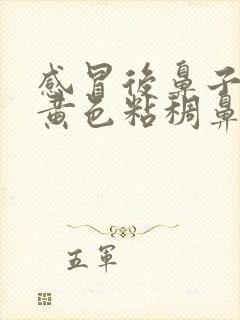 感冒后鼻子
黄色粘稠鼻
五軍